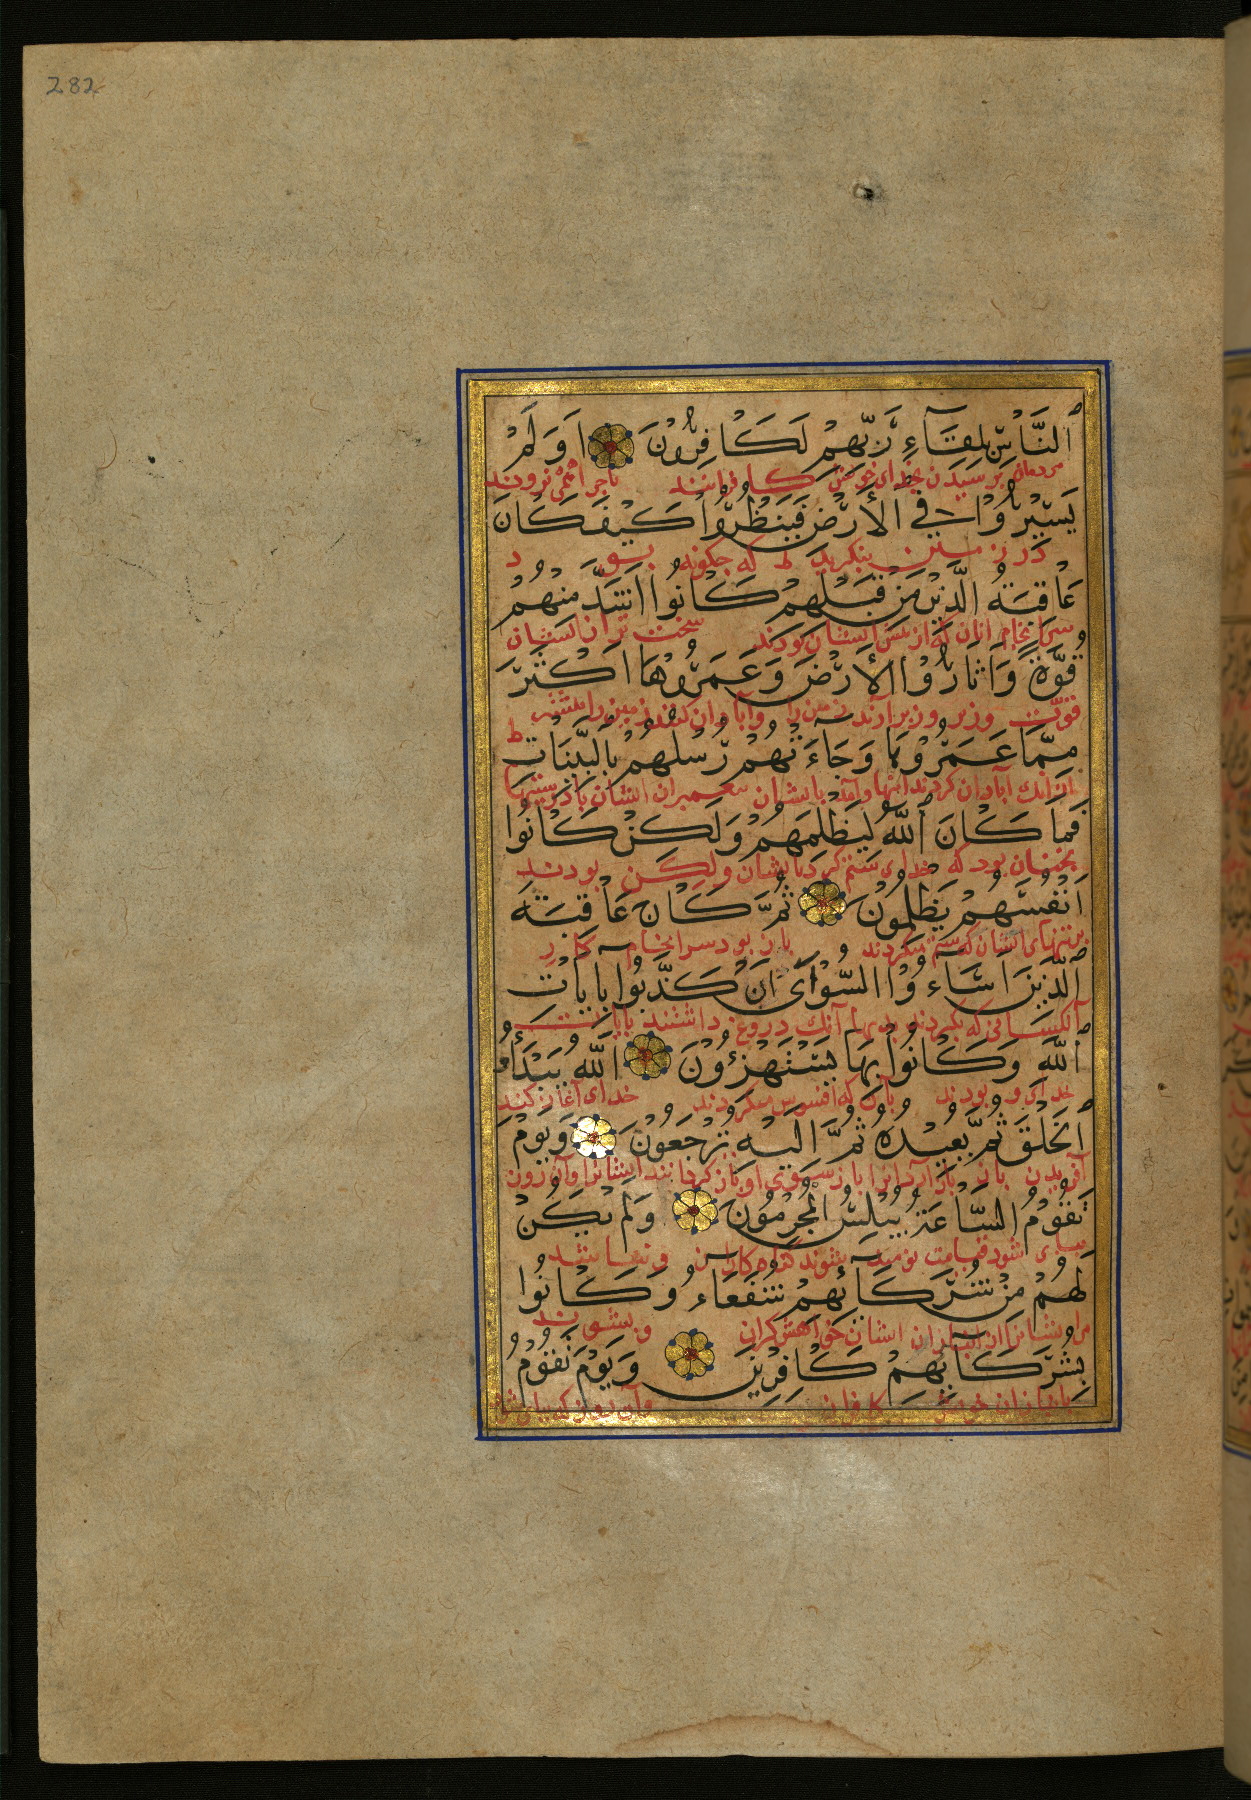 282
ٱلنَّاسِ بِلِقَآءِ رَبِّهِمْ لَكَافِرُونَ اَوَلَمْ
مردمان برسیدن بخدای خویش کافرانند
يَسِيْرُوْا فِي ٱلْأَرْضِ فَيَنْظُرُوا كَيْفَ كَانَ
در زمین بنگرید ط که چگونه بود
عَاقِبَةُ الَّذِيْنَ مِنْ قَبْلِهِمْ كَانُوا اَشَدَّ مِنْهُمْ
سرانجام آنان که از پیش ایشان بودند سخت تر از ایشان
قُوَّةً وَاَثَارُوْا الْأَرْضَ وَعَمَرُوْهَا اَكْثَرَ
قوت وزیر وزبر آرند زمین را وآبادان کنند زمین را بیشتر
مِمَّا عَمَرُوْهَا وَجَاءَتْهُمْ رُسُلُهُمْ بِالْبَيِّنَاتِ ط
از آنك آبادان کردند اینها وآمد بایشان پیغمبران ایشان
فَمَا كَانَ ٱللّٰهُ لِيَظْلِمَهُمْ وَلٰكِنْ كَانُوا
بود که خدای ستم کردبایشان ولیکن بودند
اَنْفُسَهُمْ يَظْلِمُوْنَ ثُمَّ كَانَ عَاقِبَةَ
برتنهای ایشان که ستم میکردند باز بود سرانجام کار
ٱلَّذِيْنَ اَسَآءُوْا السُّوْآٰى اَنْ كَذَّبُوْا بِاٰيَاتِ
آنکسانی که بکردند بدیها آنك دروغ داشتند بآیات
ٱللّٰهِ وَكَانُوْا بِهَا يَسْتَهْزِؤُوْنَ اَللّٰهُ يَبْدَأُ
خدای و بودند بآن که افسوس میکردند خدای آغاز کند
اَلْخَلْقَ ثُمَّ يُعِيْدُهُ ثُمَّ اِلَيْهِ تُرْجَعُوْنَ وَيَوْمَ
آفریدن باز بازآرد آنرا باز سوی او بازگردانند ایشانرا وآن روز
تَقُوْمُ السَّاعَةُ يُبْلِسُ الْمُجْرِمُوْنَ وَلَمْ يَكُنْ
بپای شود قیامت نومید شوند گناه کاران و نباشد
لَهُمْ مِنْ شُرَكَآئِهِمْ شُفَعَاءُ وَكَانُوْا
مرایشانرا از انبازان ایشان خواهش گران و بشوند
بِشُرَكَآئِهِمْ كَافِرِيْنَ وَيَوْمَ تَقُوْمُ
بانبازان خویش کافران وآن روز که بپای شود